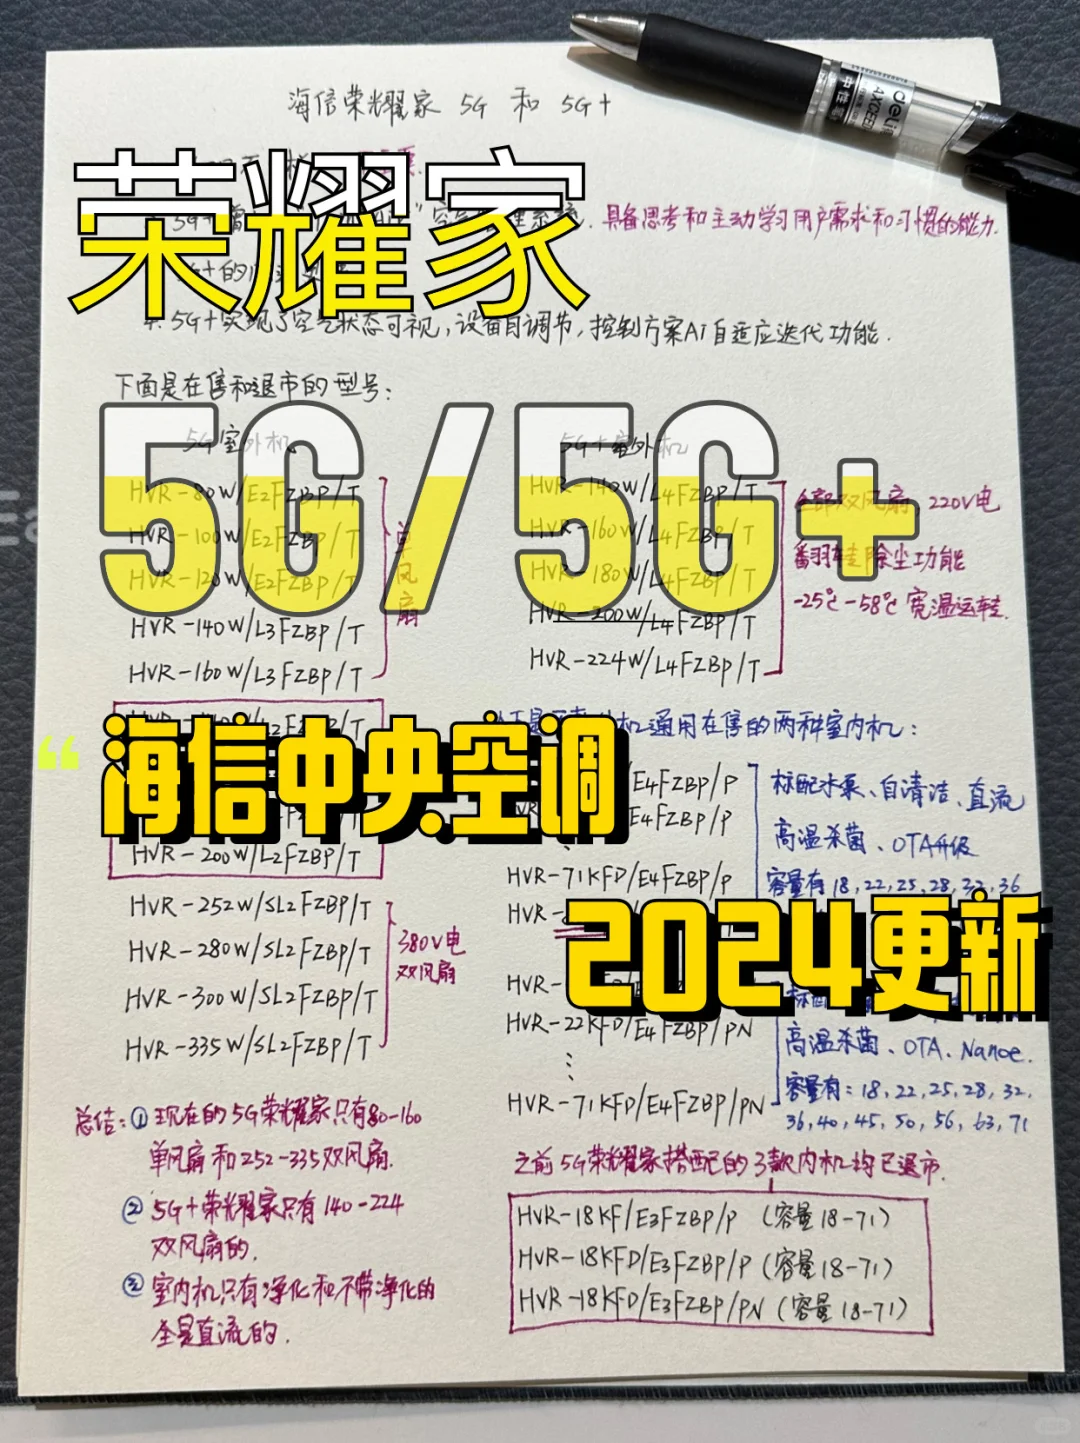 海信荣耀家 5G 和 5G+
荣耀家
具备思考和主动学习用户需求和习惯的能力.
5G+实现了空气状态可视,设备自调节,控制方案Ai自适应迭代功能.
下面是在售和退市的型号:
5G/5G+
5G室外机
HVR-80W/E2FZBP/T
HVR-100W/E2FZBP/T
HVR-120W/E2FZBP/T
HVR-140W/L3FZBP/T
HVR-160W/L3FZBP/T
单风扇
5G+室外机
HVR-140W/L4FZBP/T
HVR-160W/L4FZBP/T
HVR-180W/L4FZBP/T
HVR-200W/L4FZBP/T
HVR-224W/L4FZBP/T
全部双风扇 220V电
翻转除尘功能
-25℃-58℃ 宽温运转.
“海信中央空调
HVR-200W/L2FZBP/T
HVR-252W/SL2FZBP/T
HVR-280W/SL2FZBP/T
HVR-300W/SL2FZBP/T
HVR-335W/SL2FZBP/T
380V电
双风扇
机通用在售的两种室内机:
/E4FZBP/P
/E4FZBP/P
HVR-71KFD/E4FZBP/P
HVR-
标配水泵、自清洁、直流
高温杀菌、OTA升级
容量有18,22,25,28,32,36
2024更新
HVR-
HVR-22KFD/E4FZBP/PN
HVR-71KFD/E4FZBP/PN
高温杀菌、OTA、Nanoe.
容量有:18,22,25,28,32,
36,40,45,50,56,63,71
总结:①现在的5G荣耀家只有80-160
单风扇和252-335双风扇.
②5G+荣耀家只有140-224
双风扇的.
③室内机只有净化和不带净化的
全是直流的.
之前5G荣耀家搭配的3款内机均已退市.
HVR-18KF/E3FZBP/P (容量18-71)
HVR-18KFD/E3FZBP/P (容量18-71)
HVR-18KFD/E3FZBP/PN (容量18-71)
deli
AXCEED
中性